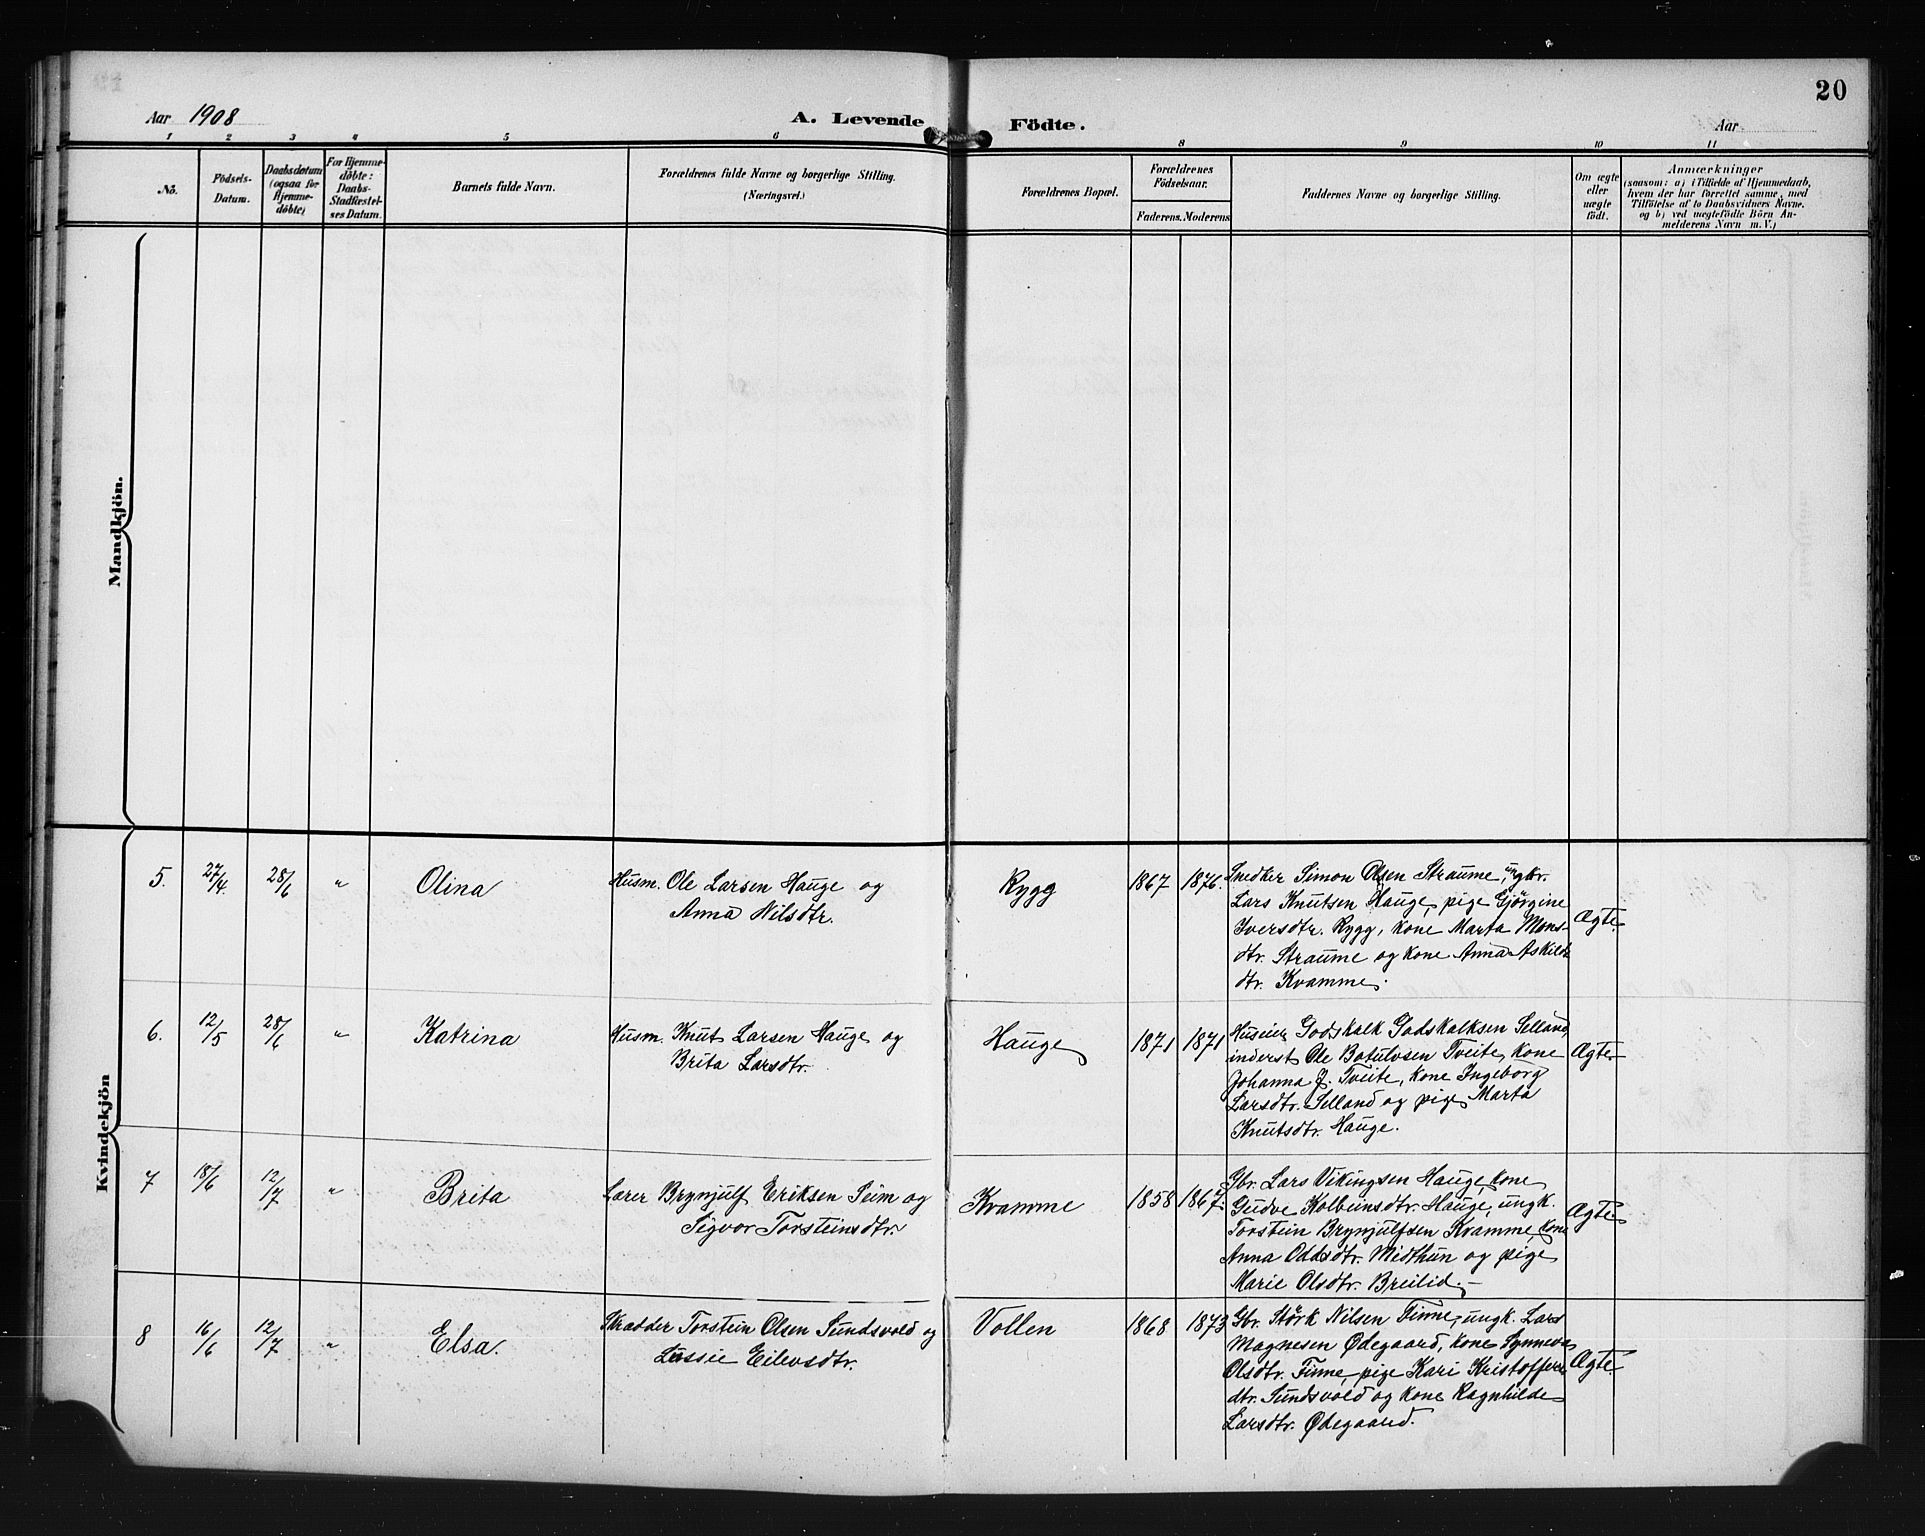 20
Aar 1908
A. Levende
Födte.
Aar
1 2 3 4 5 6 8 9 10 11
No.
Födsels-
Datum.
Daabsdatum
(ogsaa for
Hjemme-
döbte)
For Hjemme-
döbte:
Daabs-
Stadfæstel-
ses Datum.
Barnets fulde Navn.
Forældrenes fulde Navne og borgerlige Stilling.
(Næringsvei.)
Forældrenes Bopæl.
Forældrenes
Födselsaar.
Faderens. Moderens
Faddernes Navne og borgerlige Stilling.
Om ægte
eller
uægte
födt.
Anmærkninger
(saasom: a) i Tilfælde af Hjemmedaab,
hvem der har forrettet samme, med
Tilföielse af to Daabsvidners Navne.
og b) ved uægtefödte Börn An-
melderens Navn m. V.)
Mandkjön.
Kvindekjön
5. 27/4. 28/6 " Olina
Husm. Ole Larsen Hauge og
Anna Nilsdtr.
Rygg
1867 1876.
Snedker Simon Olsen Straume, ungkr.
Lars Knutsen Hauge, pige Gjörgine
Iversdtr. Rygg, kone Marta Mons-
dtr. Straume og kone Anna Askilds
dtr. Kvamme.
Ægte.
6. 12/5 28/6 " Katrina
Husm. Knut Larsen Hauge og
Brita Larsdtr.
Hauge
1871 1871
Huseier Godskalk Godskalksen Selland,
inderst Ole Botulvsen Tveite, kone
Johanna J. Tveite, kone Ingeborg
Larsdtr. Selland og pige Marta
Knutsdtr. Hauge.
Ægte
7 18/6 12/7 " Brita
Lærer Brynjulf Eriksen Seim og
Sigvor Torsteinsdtr.
Kvamme
1858 1867.
Gbr. Lars Vikingsen Hauge, kone
Gudve Kolbeinsdtr. Hauge, ungk.
Torstein Brynjulfsen Kvamme, kone
Anna Oddsdtr. Midthun og pige
Marie Olsdtr. Breilid.
Ægte
8 16/6 12/7 " Elsa.
Skrædder Torstein Olsen Sundsvold og
Lussie Eilevsdtr.
Vollen
1868 1873
Gbr. Störk Nilsen Finne, ungk. Lars
Magnesen Ødegaard, kone Synneva
Olsdtr. Finne, pige Kari Kristoffers
dtr. Sundsvold og kone Ragnhilde
Larsdtr. Ødegaard.
Ægte.